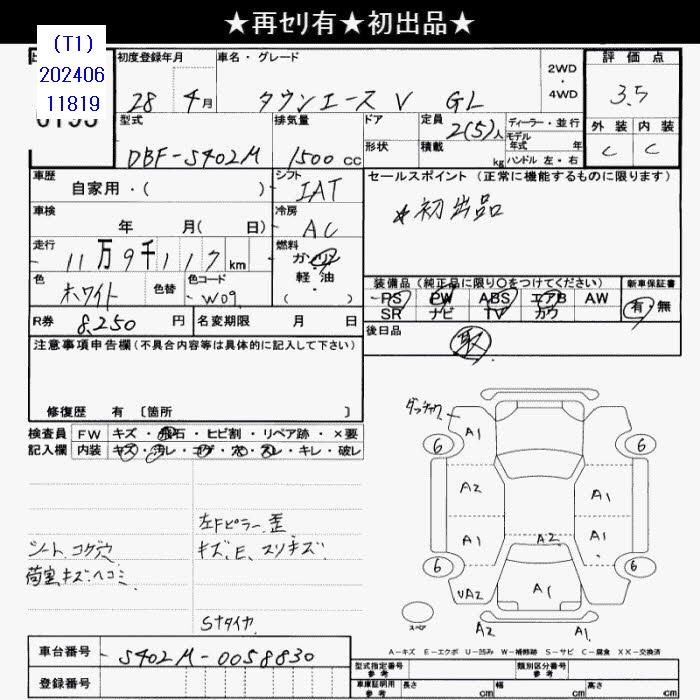 ★再セリ有★初出品★
(T1)
202406
11819
初度登録年月
28 年 4月
車名・グレード
タウンエース V GL
2WD
・
4WD
評価点
3.5
外装 内装
C C
型式
DBF-S402M
排気量
1500 cc
ドア
形状
定員
2(5)人
積載
kg
ディーラー・並行
モデル
年式 年
ハンドル 左・右
車歴
自家用・( )
シフト
IAT
セールスポイント (正常に機能するものに限ります)
★初出品
車検
年 月( 日)
冷房
AC
走行
11万9千117km
燃料
ガソリン
軽・油
( )
色
ホワイト
色替
色コード
W09
装備品(純正品に限り○をつけてください) 新車保証書
PS PW ABS エアB AW
SR ナビ TV カワ
有・無
R券
8,250 円
名変期限 月 日
後日品
取
注意事項申告欄(不具合内容等は具体的に記入して下さい)
修復歴 有 〔箇所 〕
検査員
記入欄
FW キズ・飛石・ヒビ割・リペア跡・×要
内装 キズ・汚レ・コゲ・穴・スレ・キレ・破レ
左Fピラー歪
キズ、E、スリキズ
シート、コゲ穴
荷室、キズ、ヘコミ
Sタイヤ
A1
6
6
A2
A1
A1
A1
A2
6
6
UA2
A1
スペア
A2
A1
A-キズ E-エクボ U-凹み W-補修跡 S-サビ C-腐食 XX-交換済
車台番号
S402M-0058830
登録番号
型式指定番号
参考
類別区分番号
参考
車庫証明用
参考
長さ cm 幅 cm 高さ cm